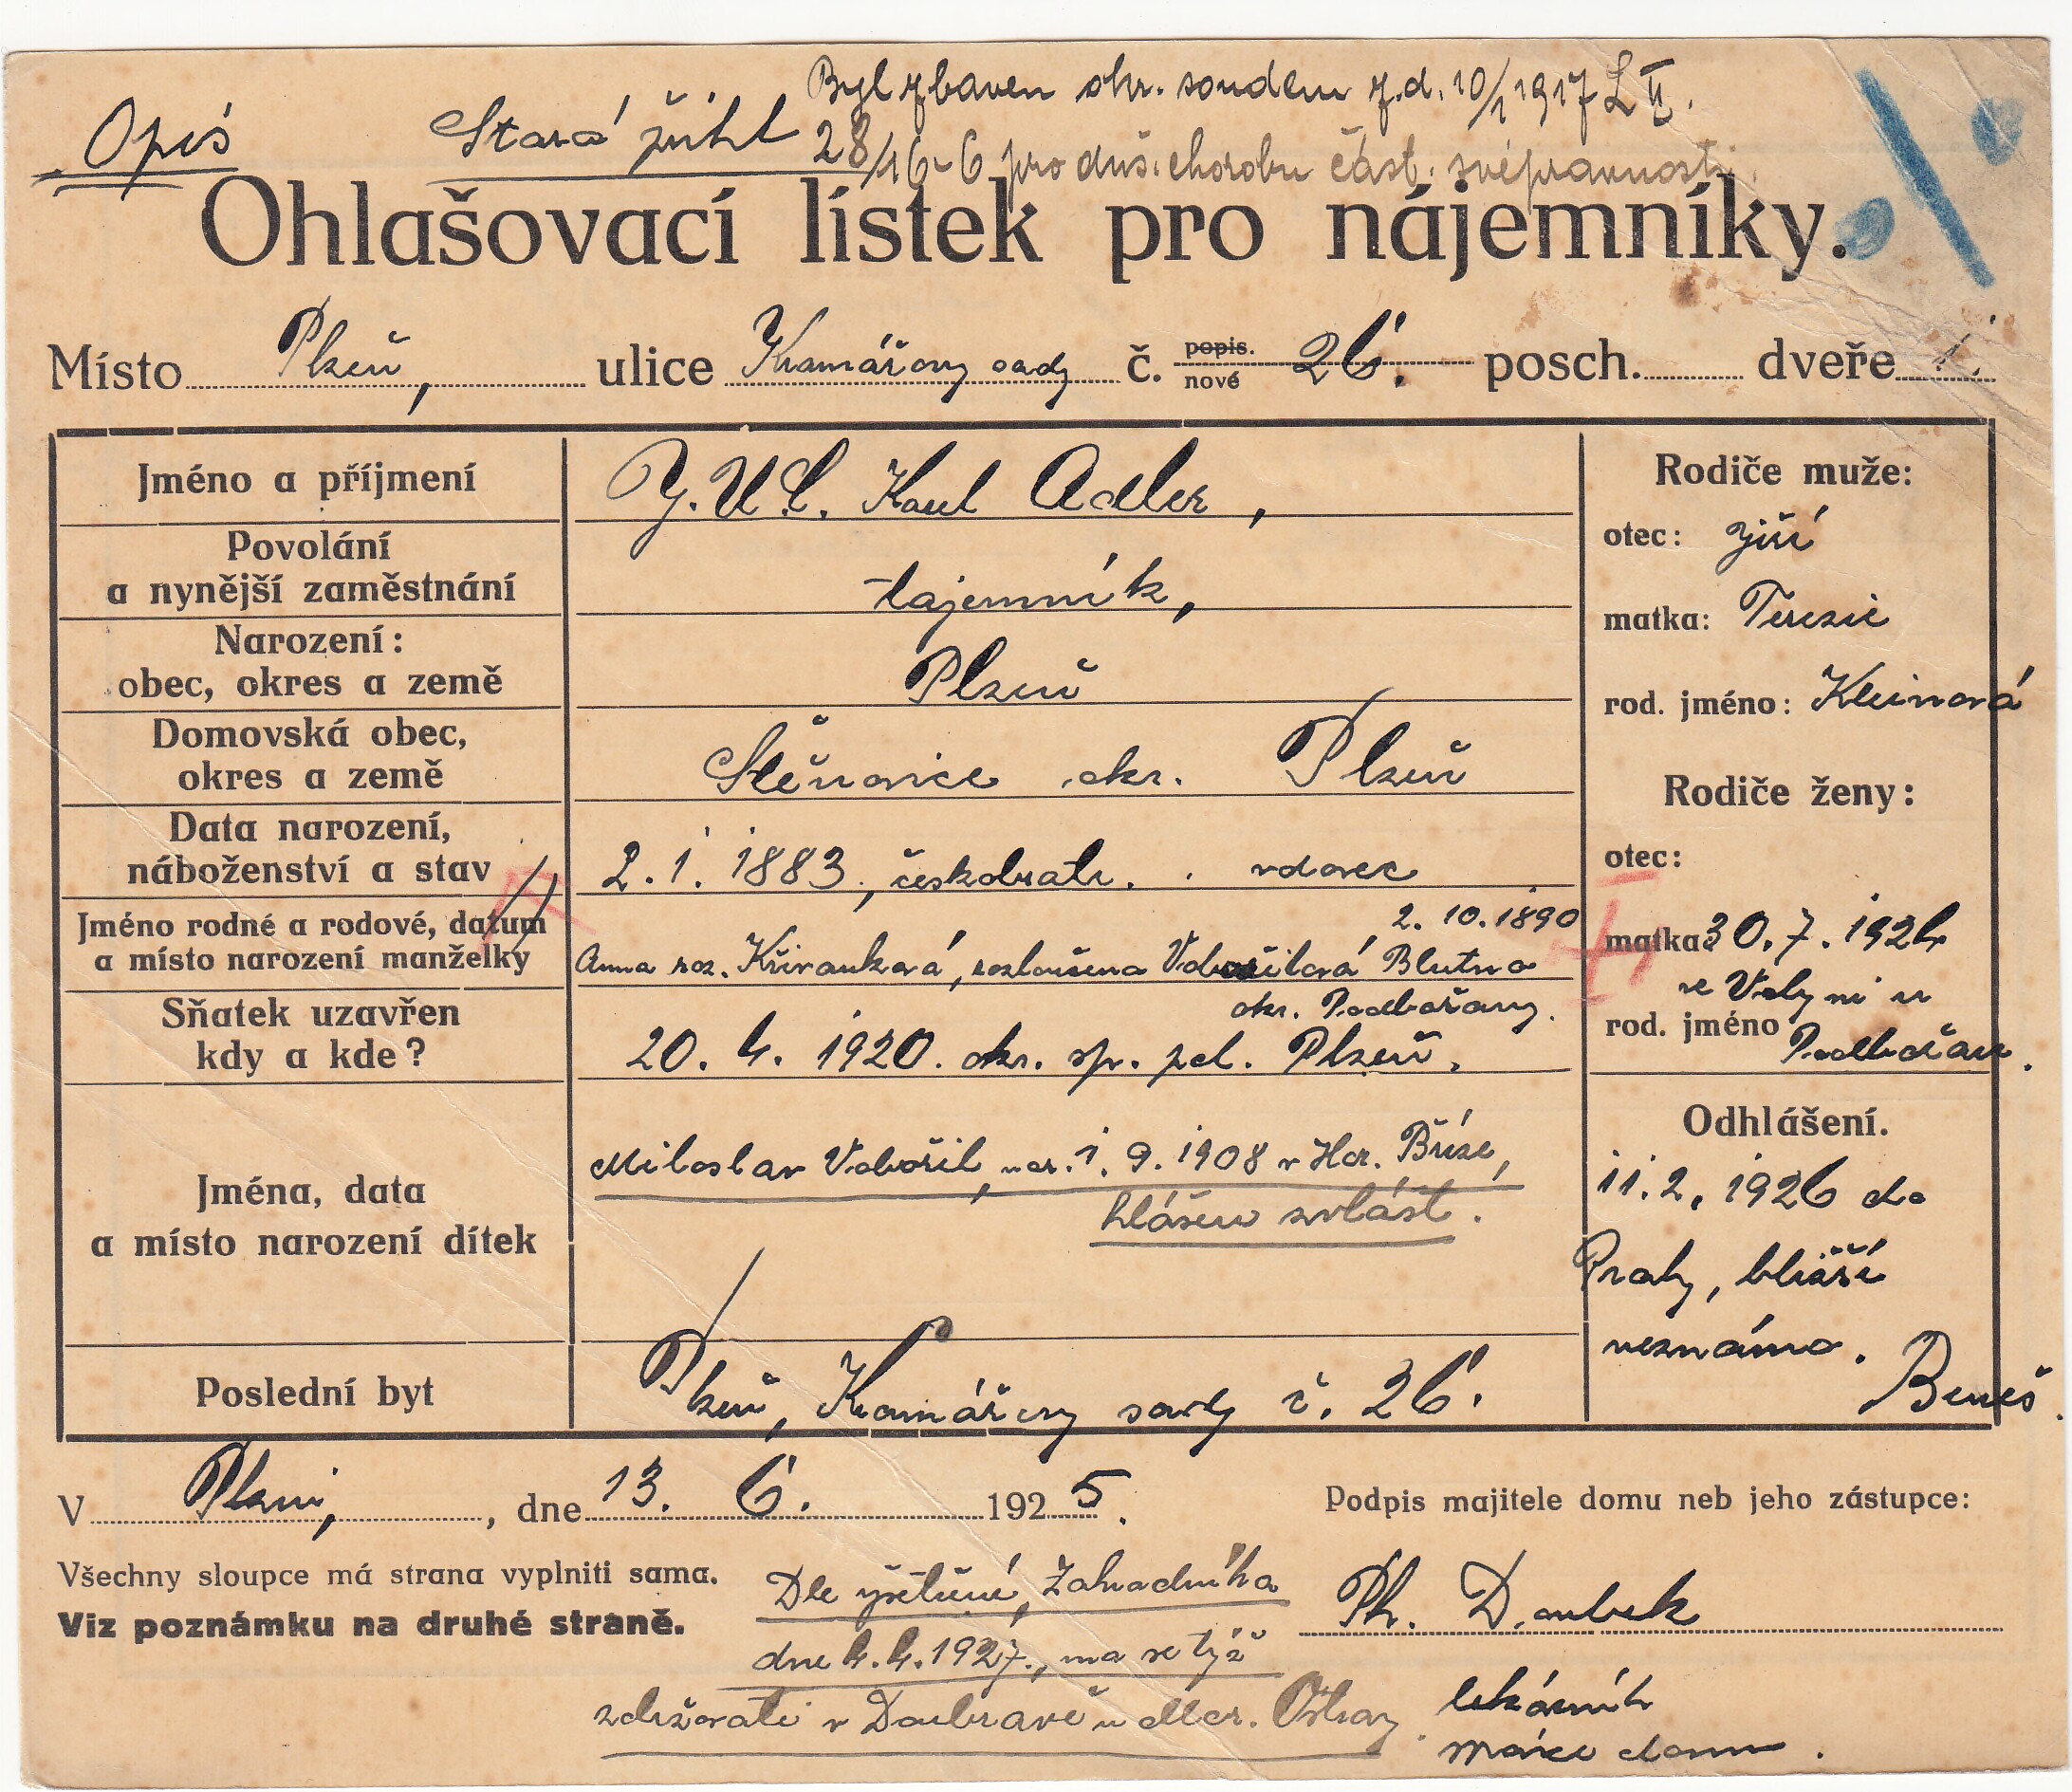 Opis Stará přihl. Byl zbaven okr. soudem z. d. 10/1 1917 L II.
28/16-6 pro duš. chorobu část. svéprávnosti.
Ohlašovací lístek pro nájemníky.
Místo Plzeň, ulice Kramářovy sady č. popis. nové 26. posch. dveře 1.
Jméno a příjmení J.U.C. Karel Adler,
Povolání
a nynější zaměstnání tajemník,
Narození:
obec, okres a země Plzeň
Domovská obec,
okres a země Štěnovice okr. Plzeň
Data narození,
náboženství a stav 2. 1. 1883, českobratr. vdovec
Jméno rodné a rodové, datum
a místo narození manželky Anna roz. Křivanková, rozloučena Vobořilová 2. 10. 1890 Blatno
okr. Podbořany.
Sňatek uzavřen
kdy a kde? 20. 4. 1920. okr. sp. pol. Plzeň.
Jména, data
a místo narození dítek Miloslav Vobořil, nar. 1. 9. 1908 v Hor. Bříze,
hlášen zvlášt.
Poslední byt Plzeň, Kramářovy sady č. 26.
Rodiče muže:
otec: Jiří
matka: Terezie
rod. jméno: Kleinová
Rodiče ženy:
otec:
matka: 30. 7. 1924
ve Velyni u
rod. jméno Podbořan.
Odhlášení.
11. 2. 1926 do
Prahy, bližší
neznámo.
Beneš.
V Plzni, , dne 13. 6. 1925.
Podpis majitele domu neb jeho zástupce:
Všechny sloupce má strana vyplniti sama.
Viz poznámku na druhé straně.
Dle yšetření, Zahradníka
dne 4. 4. 1927., má se týž
zdržovati v Doubravě u Mor. Ostravy.
Ph. Doubek
lekárník
správce domu.